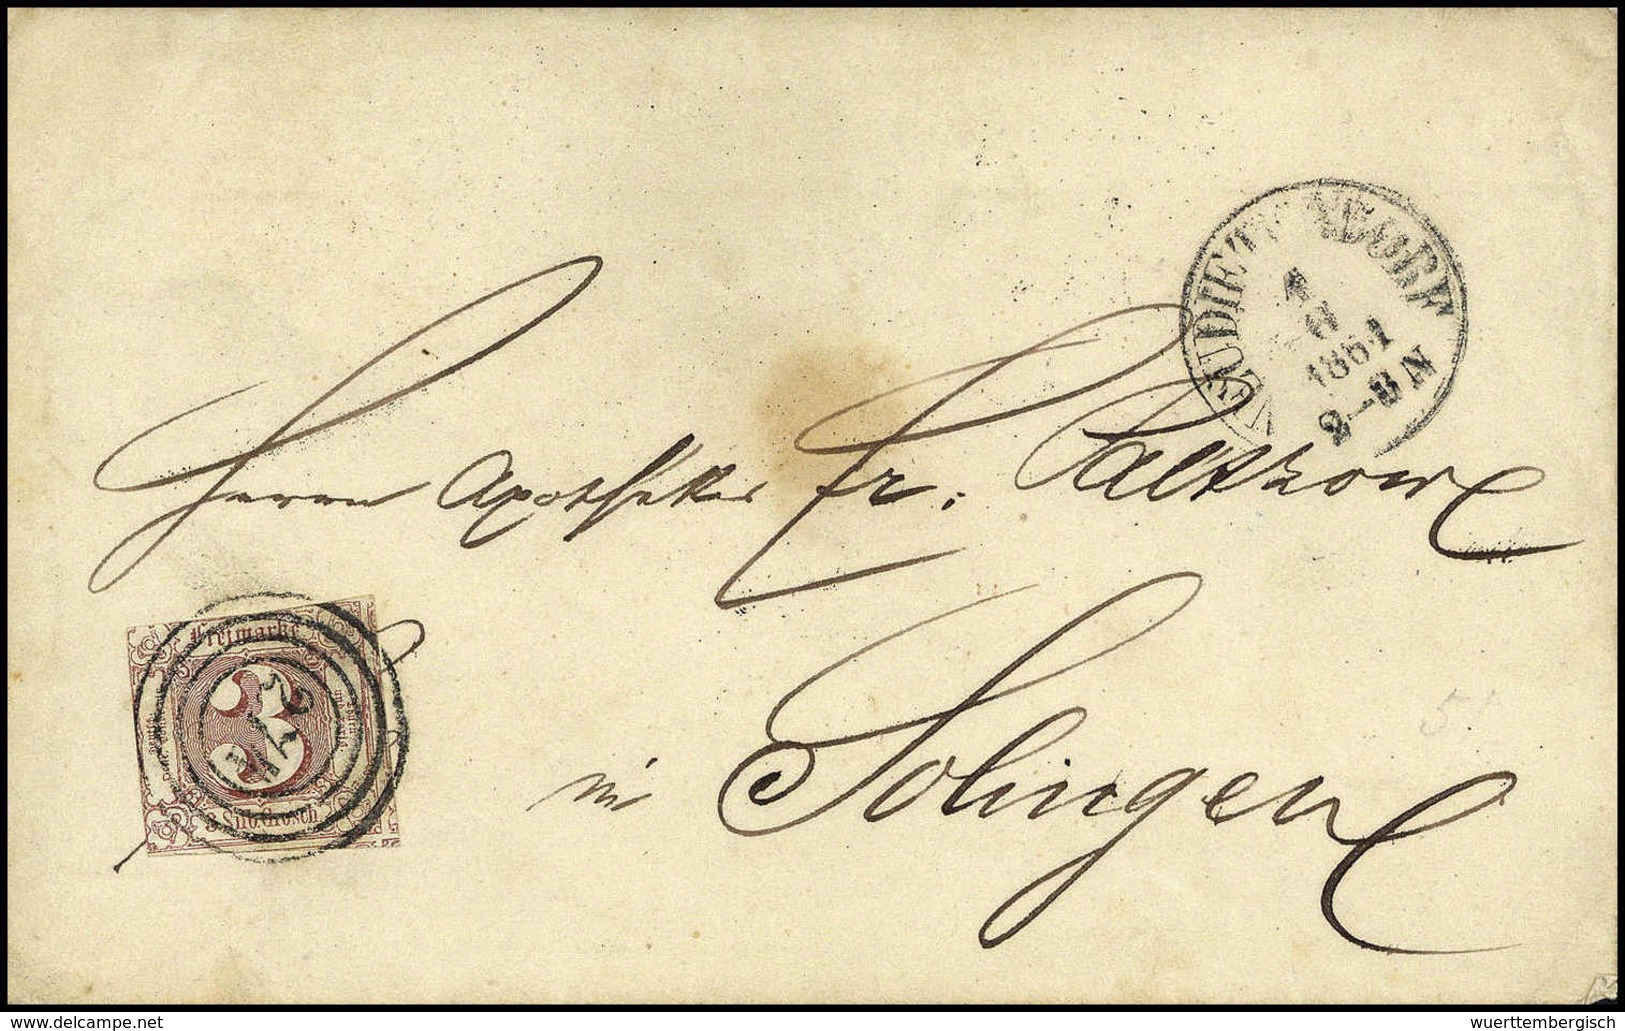 NEUDIETENDORF
1
8
1861
2—3 N
Herrn Apotheker Fr. Paltzow
in Solingen
Freimarke
3
3 Silb.Grosch
delcampe.net
wuerttembergisch